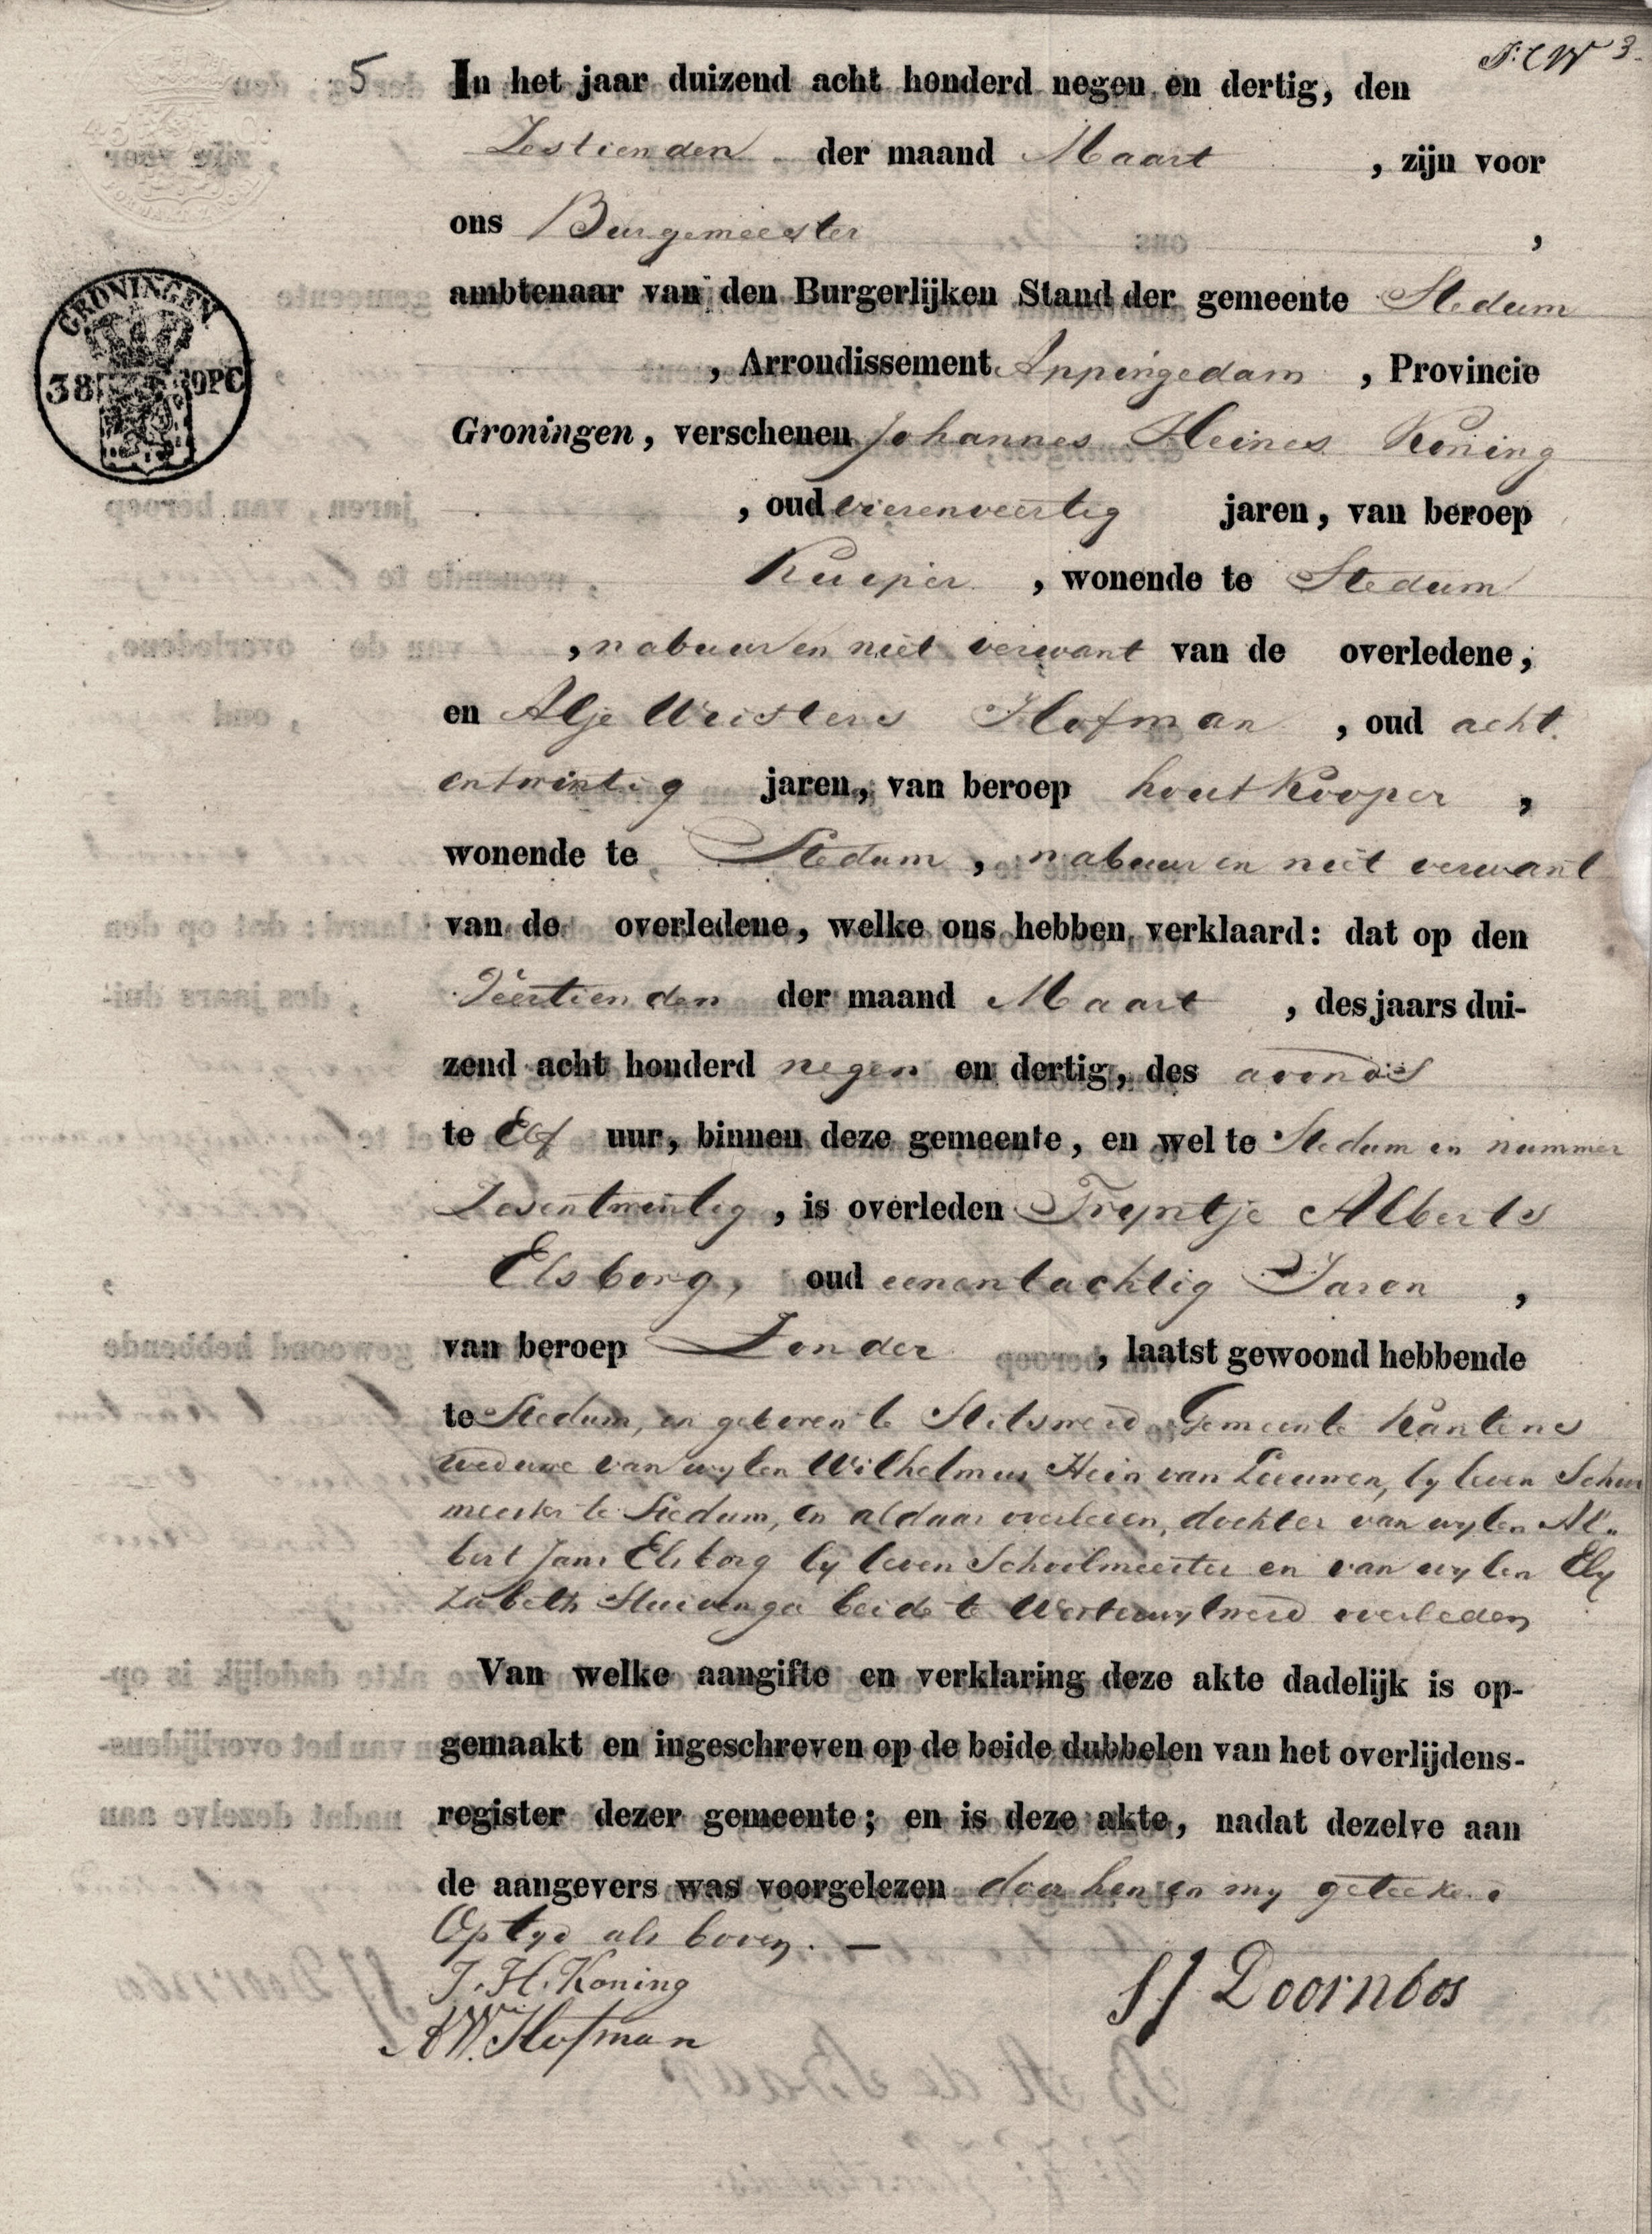 5 In het jaar duizend acht honderd negen en dertig, den
Zestienden der maand Maart , zijn voor
ons Burgemeester ,
ambtenaar van den Burgerlijken Stand der gemeente Stedum
, Arrondissement Appingedam , Provincie
Groningen, verschenen Johannes Heines Koning
, oud vierenveertig jaren, van beroep
Kuiper , wonende te Stedum
, nabuur en niet verwant van de overledene,
en Alje Wristers Hofman , oud acht
entwintig jaren, van beroep houtkooper ,
wonende te Stedum , nabuur en niet verwant
van de overledene, welke ons hebben verklaard: dat op den
Veertienden der maand Maart , des jaars dui-
zend acht honderd negen en dertig, des avonds
te Elf uur, binnen deze gemeente, en wel te Stedum in nummer
Zeventwintig , is overleden Tryntje Alberts
Elsborg, oud eenentachtig Jaren ,
van beroep Zonder , laatst gewoond hebbende
te Stedum, en geboren te Stitswerd Gemeente Kantens
weduwe van wylen Wilhelmus Hein van Leeuwen, by leven School
meester te Stedum, en aldaar overleden, dochter van wylen Al"
bert Jans Elsborg by leven Schoolmeester en van wylen Ely
zabeth Sluivenga beide te Westerwytwerd overleden
Van welke aangifte en verklaring deze akte dadelijk is op-
gemaakt en ingeschreven op de beide dubbelen van het overlijdens-
register dezer gemeente; en is deze akte, nadat dezelve aan
de aangevers was voorgelezen door hen en my geteekend
Op tyd als boven. —
J. H. Koning
AW. Hofman
SJ Doornbos
GRONINGEN
38